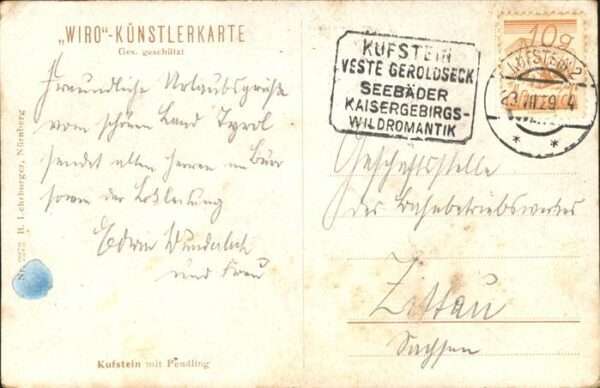 „WIRO"-KÜNSTLERKARTE
Ges. geschützt
Freundliche Urlaubsgrüße
vom schönen Land Tyrol
sendet allen Herren im Büro
sowie der Lokleitung
Edwin Wunderlich
und Frau
Kufstein mit Pendling
Nr. 2272 H. Lehrburger, Nürnberg
KUFSTEIN
VESTE GEROLDSECK
SEEBÄDER
KAISERGEBIRGS-
WILDROMANTIK
10g
KUFSTEIN 2
23 VII 29 4
Geschäftsstelle
des Bahnbetriebswerkes
Zittau
Sachsen